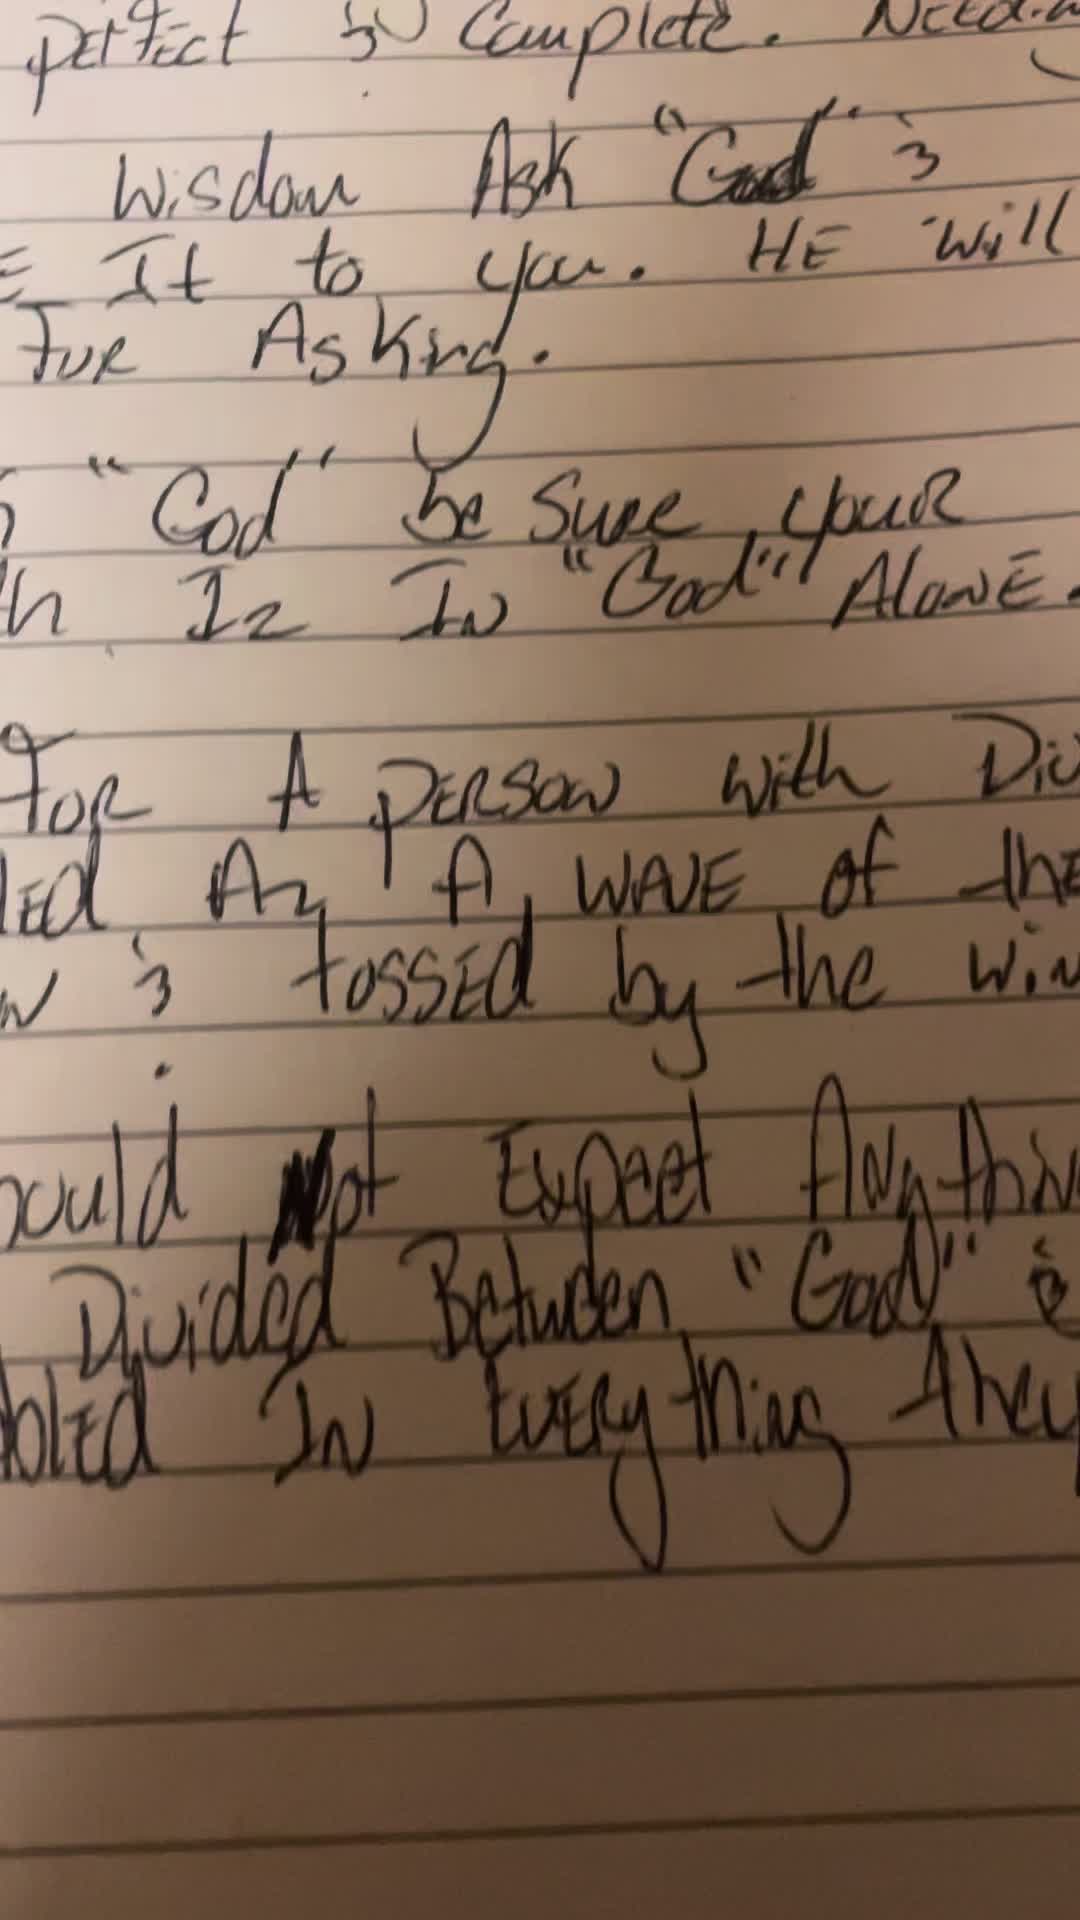 perfect & Complete. Needin
Wisdom Ask "God" &
E It to you. HE Will
For Asking.
"God" be Sure your
th Iz In "God" Alone.
For A person with Div
led Az A wave of the
n & tossed by the win
ould Not Expect Anythin
Divided Between "God" &
bled In Everything they